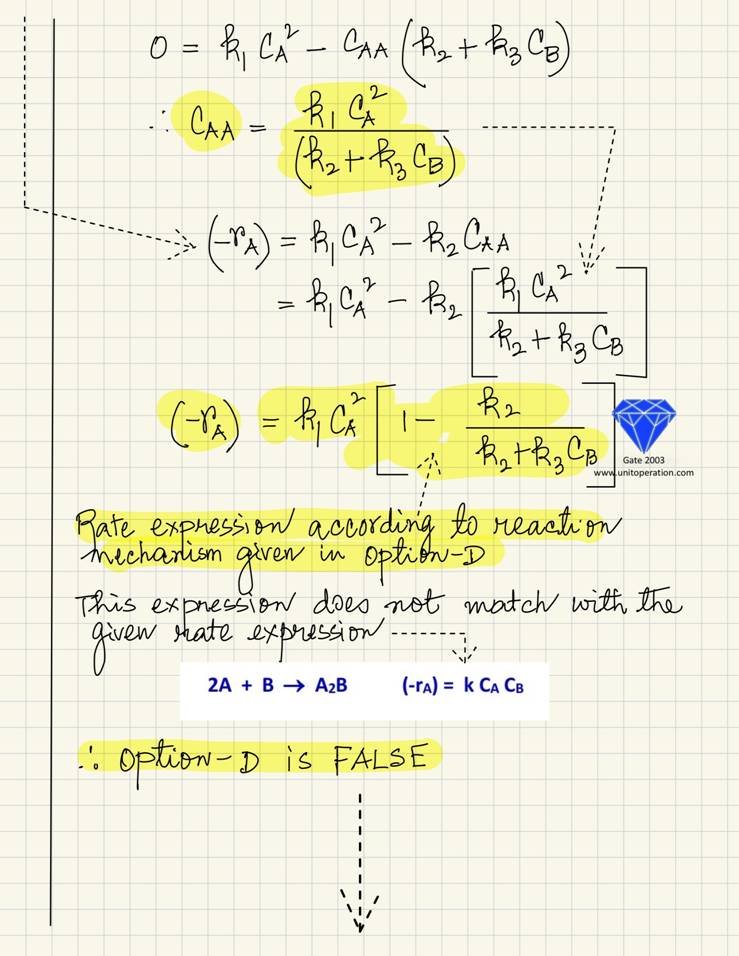 0 = k₁ C_A² − C_AA (k₂ + k₃ C_B)
∴ C_AA = k₁ C_A² / (k₂ + k₃ C_B)
(−r_A) = k₁ C_A² − k₂ C_AA
= k₁ C_A² − k₂ [k₁ C_A² / k₂ + k₃ C_B]
(−r_A) = k₁ C_A² [1 − k₂ / k₂ + k₃ C_B]
Gate 2003
www.unitoperation.com
Rate expression according to reaction
mechanism given in Option-D
This expression does not match with the
given rate expression
2A + B → A₂B (-r_A) = k C_A C_B
∴ Option-D is FALSE